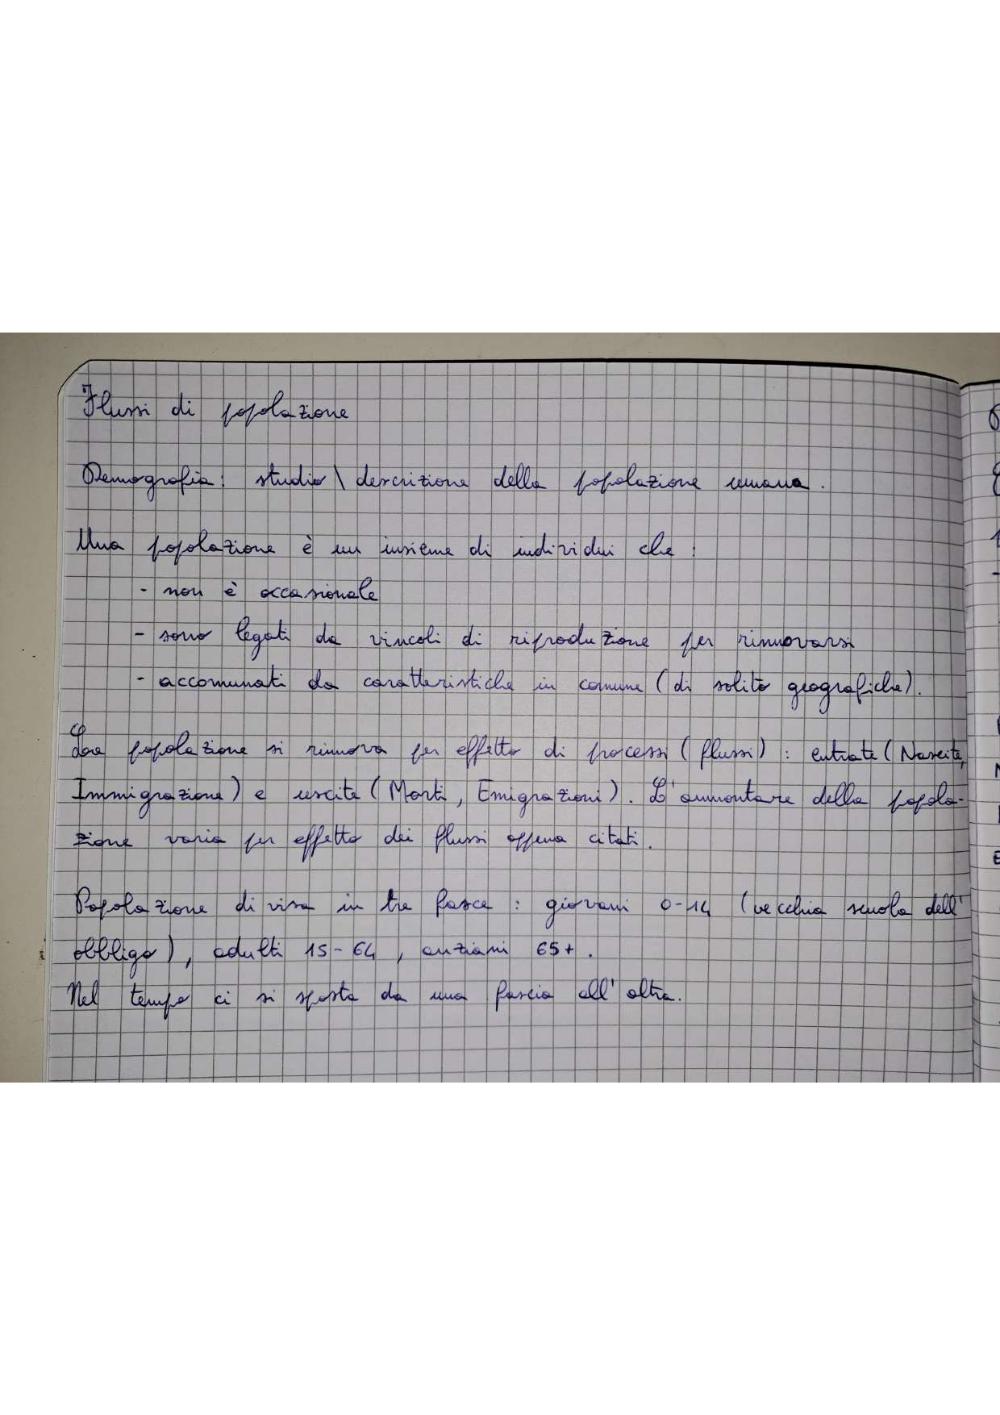 Flussi di popolazione
Demografia: studio \ descrizione della popolazione umana.
Una popolazione è un insieme di individui che :
- non è occasionale
- sono legati da vincoli di riproduzione per rinnovarsi
- accomunati da caratteristiche in comune (di solito geografiche).
La popolazione si rinnova per effetto di processi (flussi) : entrate (Nascite,
Immigrazione) e uscite (Morti, Emigrazioni). L'ammontare della popola-
zione varia per effetto dei flussi appena citati.
Popolazione divisa in tre fasce : giovani 0-14 (vecchia scuola dell'
obbligo), adulti 15-64, anziani 65+.
Nel tempo ci si sposta da una fascia all'altra.